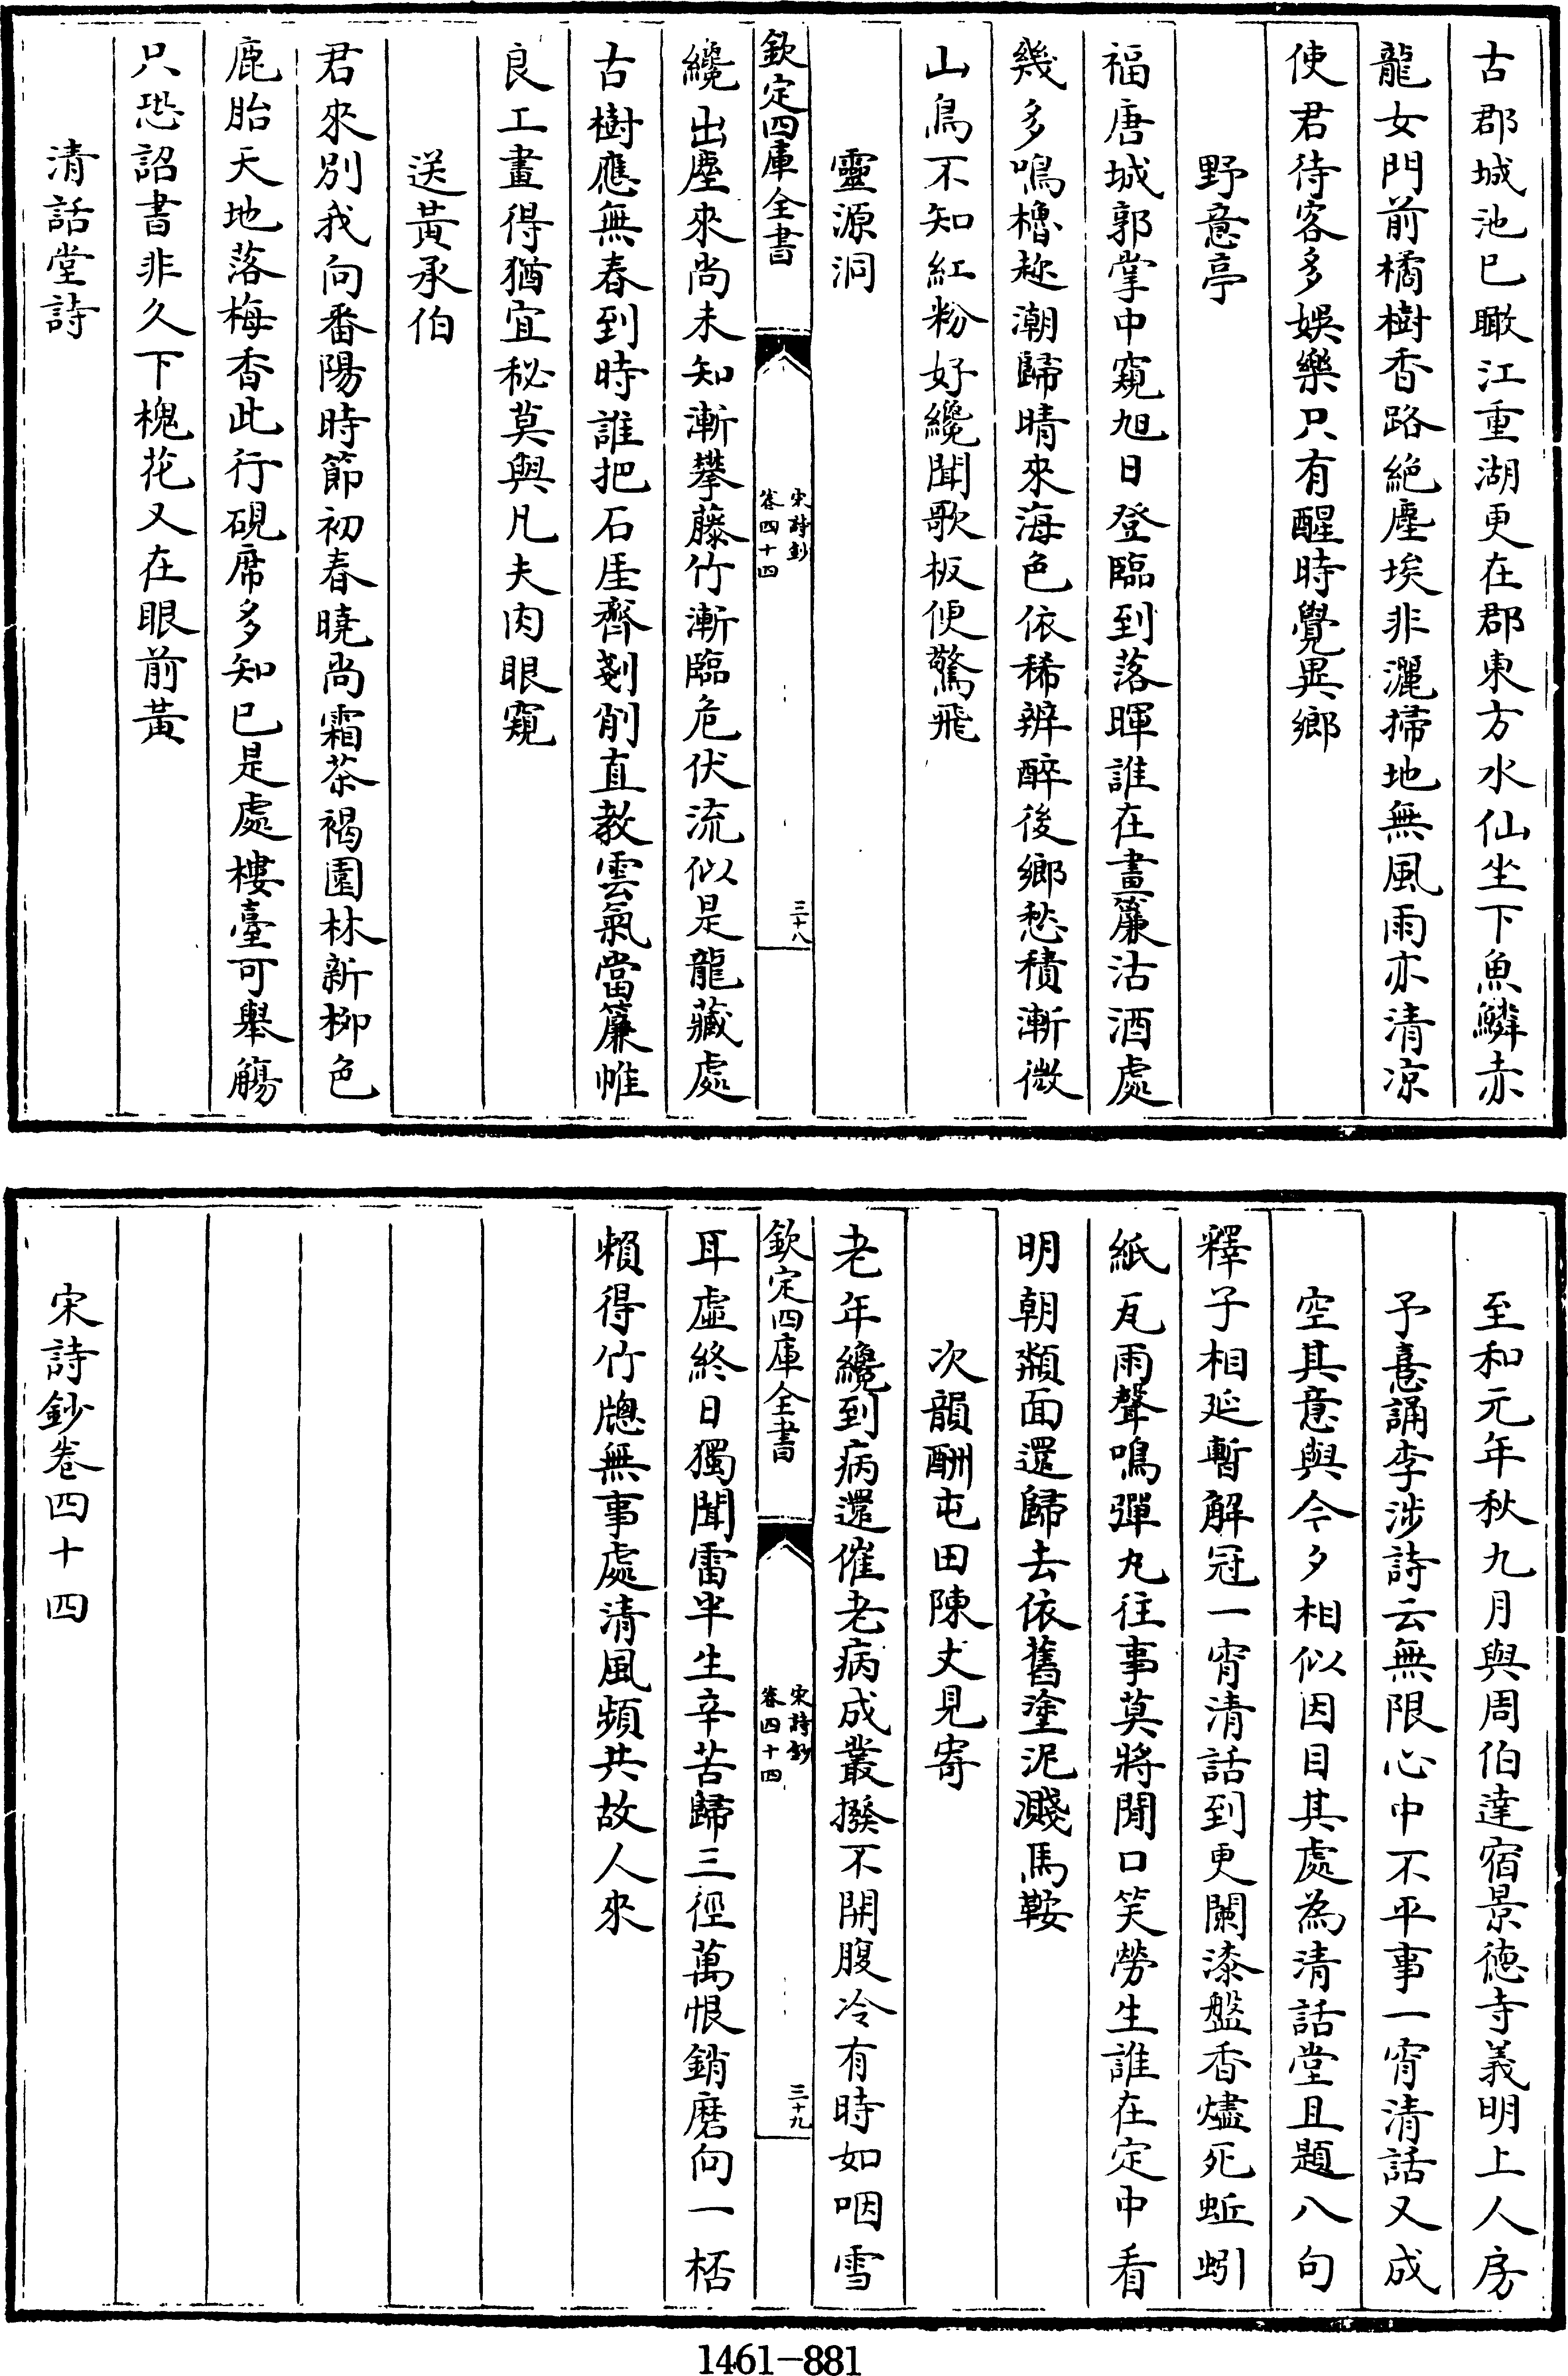 古郡城池已瞰江重湖更在郡東方水仙坐下魚鱗赤
龍女門前橘樹香路絕塵埃非灑掃地無風雨亦清凉
使君待客多娛樂只有醒時覺異鄉
野意亭
福唐城郭掌中窺旭日登臨到落暉誰在畫簾沽酒處
幾多鳴櫓趂潮歸晴來海色依稀辨醉後鄉愁積漸微
山鳥不知紅粉好纔聞歌板便驚飛
靈源洞
欽定四庫全書
宋詩鈔
卷四十四
三十八
纔出塵來尚未知漸攀藤竹漸臨危伏流似是龍藏處
古樹應無春到時誰把石崖齊剗削直教雲氣當簾帷
良工畫得猶宜秘莫與凡夫肉眼窺
送黃承伯
君來別我向番陽時節初春曉尚霜茶褐園林新柳色
鹿胎天地落梅香此行硯席多知已是處樓臺可舉觴
只恐詔書非久下槐花又在眼前黃
清話堂詩
至和元年秋九月與周伯達宿景德寺義明上人房
予憙誦李涉詩云無限心中不平事一宵清話又成
空其意與今夕相似因目其處為清話堂且題八句
釋子相延暫解冠一宵清話到更闌漆盤香燼死蚯蚓
紙瓦雨聲鳴彈丸往事莫將閒口笑勞生誰在定中看
明朝頮面還歸去依舊塗泥濺馬鞍
次韻酬屯田陳丈見寄
老年纔到病還催老病成叢撥不開腹冷有時如咽雪
欽定四庫全書
宋詩鈔
卷四十四
三十九
耳虛終日獨聞雷半生辛苦歸三徑萬恨銷磨向一桮
賴得竹牕無事處清風頻共故人來
宋詩鈔卷四十四
1461-881